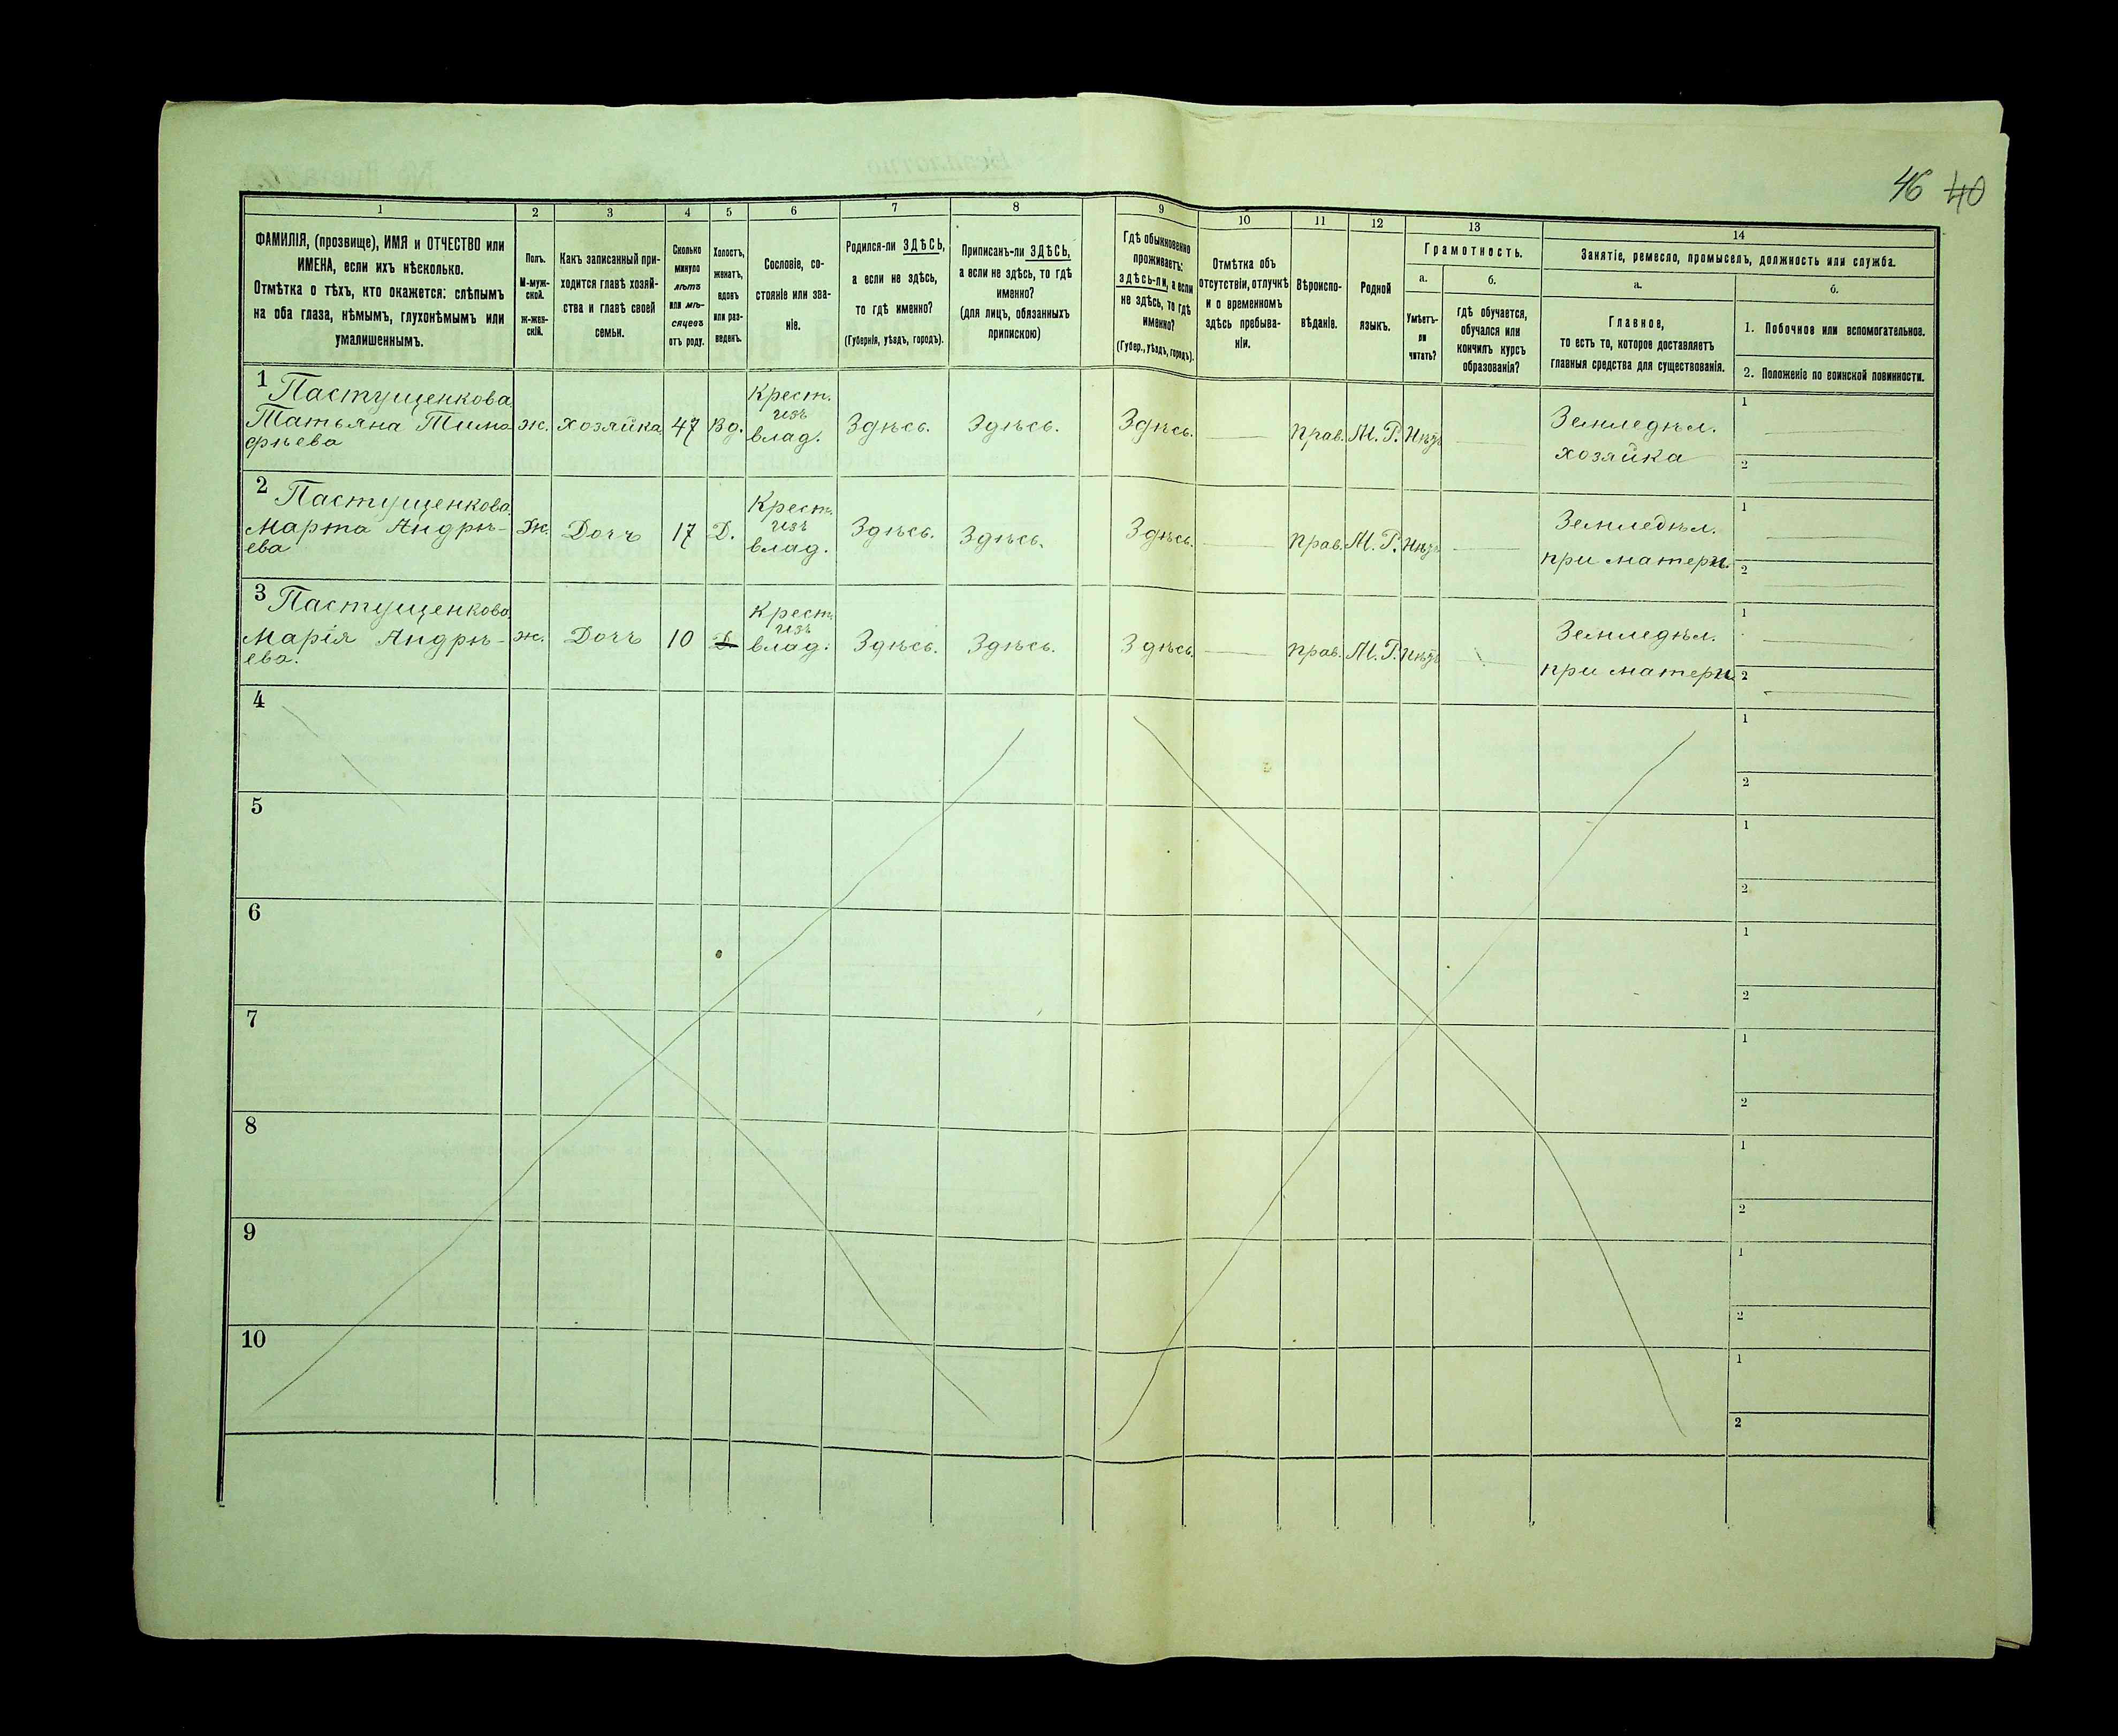 46 40
1 2 3 4 5 6 7 8 9 10 11 12 13 14
ФАМИЛІЯ, (прозвище), ИМЯ и ОТЧЕСТВО или
ИМЕНА, если ихъ нѣсколько.
Отмѣтка о тѣхъ, кто окажется: слѣпымъ
на оба глаза, нѣмымъ, глухонѣмымъ или
умалишеннымъ.
Полъ.
М-муж-
ской.
Ж-жен-
скій.
Какъ записанный при-
ходится главѣ хозяй-
ства и главѣ своей
семьи.
Сколько
минуло
лѣтъ
или мѣ-
сяцевъ
отъ роду.
Холостъ,
женатъ,
вдовъ
или раз-
веденъ.
Сословіе, со-
стояніе или зва-
ніе.
Родился-ли ЗДѢСЬ,
а если не здѣсь,
то гдѣ именно?
(Губернія, уѣздъ, городъ).
Приписанъ-ли ЗДѢСЬ,
а если не здѣсь, то гдѣ
именно?
(для лицъ, обязанныхъ
припискою)
Гдѣ обыкновенно
проживаетъ:
ЗДѢСЬ-ли, а если
не здѣсь, то гдѣ
именно?
(Губер., уѣздъ, городъ).
Отмѣтка объ
отсутствіи, отлучкѣ
и о временномъ
здѣсь пребыва-
ніи.
Вѣроиспо-
вѣданіе.
Родной
языкъ.
Грамотность.
а.
Умѣетъ-
ли
читать?
б.
гдѣ обучается,
обучался или
кончилъ курсъ
образованія?
Занятіе, ремесло, промыселъ, должность или служба.
а.
Главное,
то есть то, которое доставляетъ
главныя средства для существованія.
б.
1. Побочное или вспомогательное.
2. Положеніе по воинской повинности.
1 Пастущенкова
Татьяна Тимо
фѣева
ж. хозяйка 47 Вд.
Крест.
изъ
влад.
Здѣсь. Здѣсь. Здѣсь. прав. М. Р. Нѣтъ
Земледѣл.
хозяйка
1
2
2 Пастущенкова
Марта Андрѣ-
ева
Ж. Дочъ 17 Д.
Крест.
изъ
влад.
Здѣсь. Здѣсь. Здѣсь. прав. М. Р. Нѣтъ
Земледѣл.
при матери.
1
2
3 Пастущенкова
Марія Андрѣ-
ева.
ж. Дочъ 10 Д.
Крест.
изъ
влад.
Здѣсь. Здѣсь. Здѣсь. прав. М. Р. Нѣтъ
Земледѣл.
при матери
1
2
4
1
2
5
1
2
6
1
2
7
1
2
8
1
2
9
1
2
10
1
2